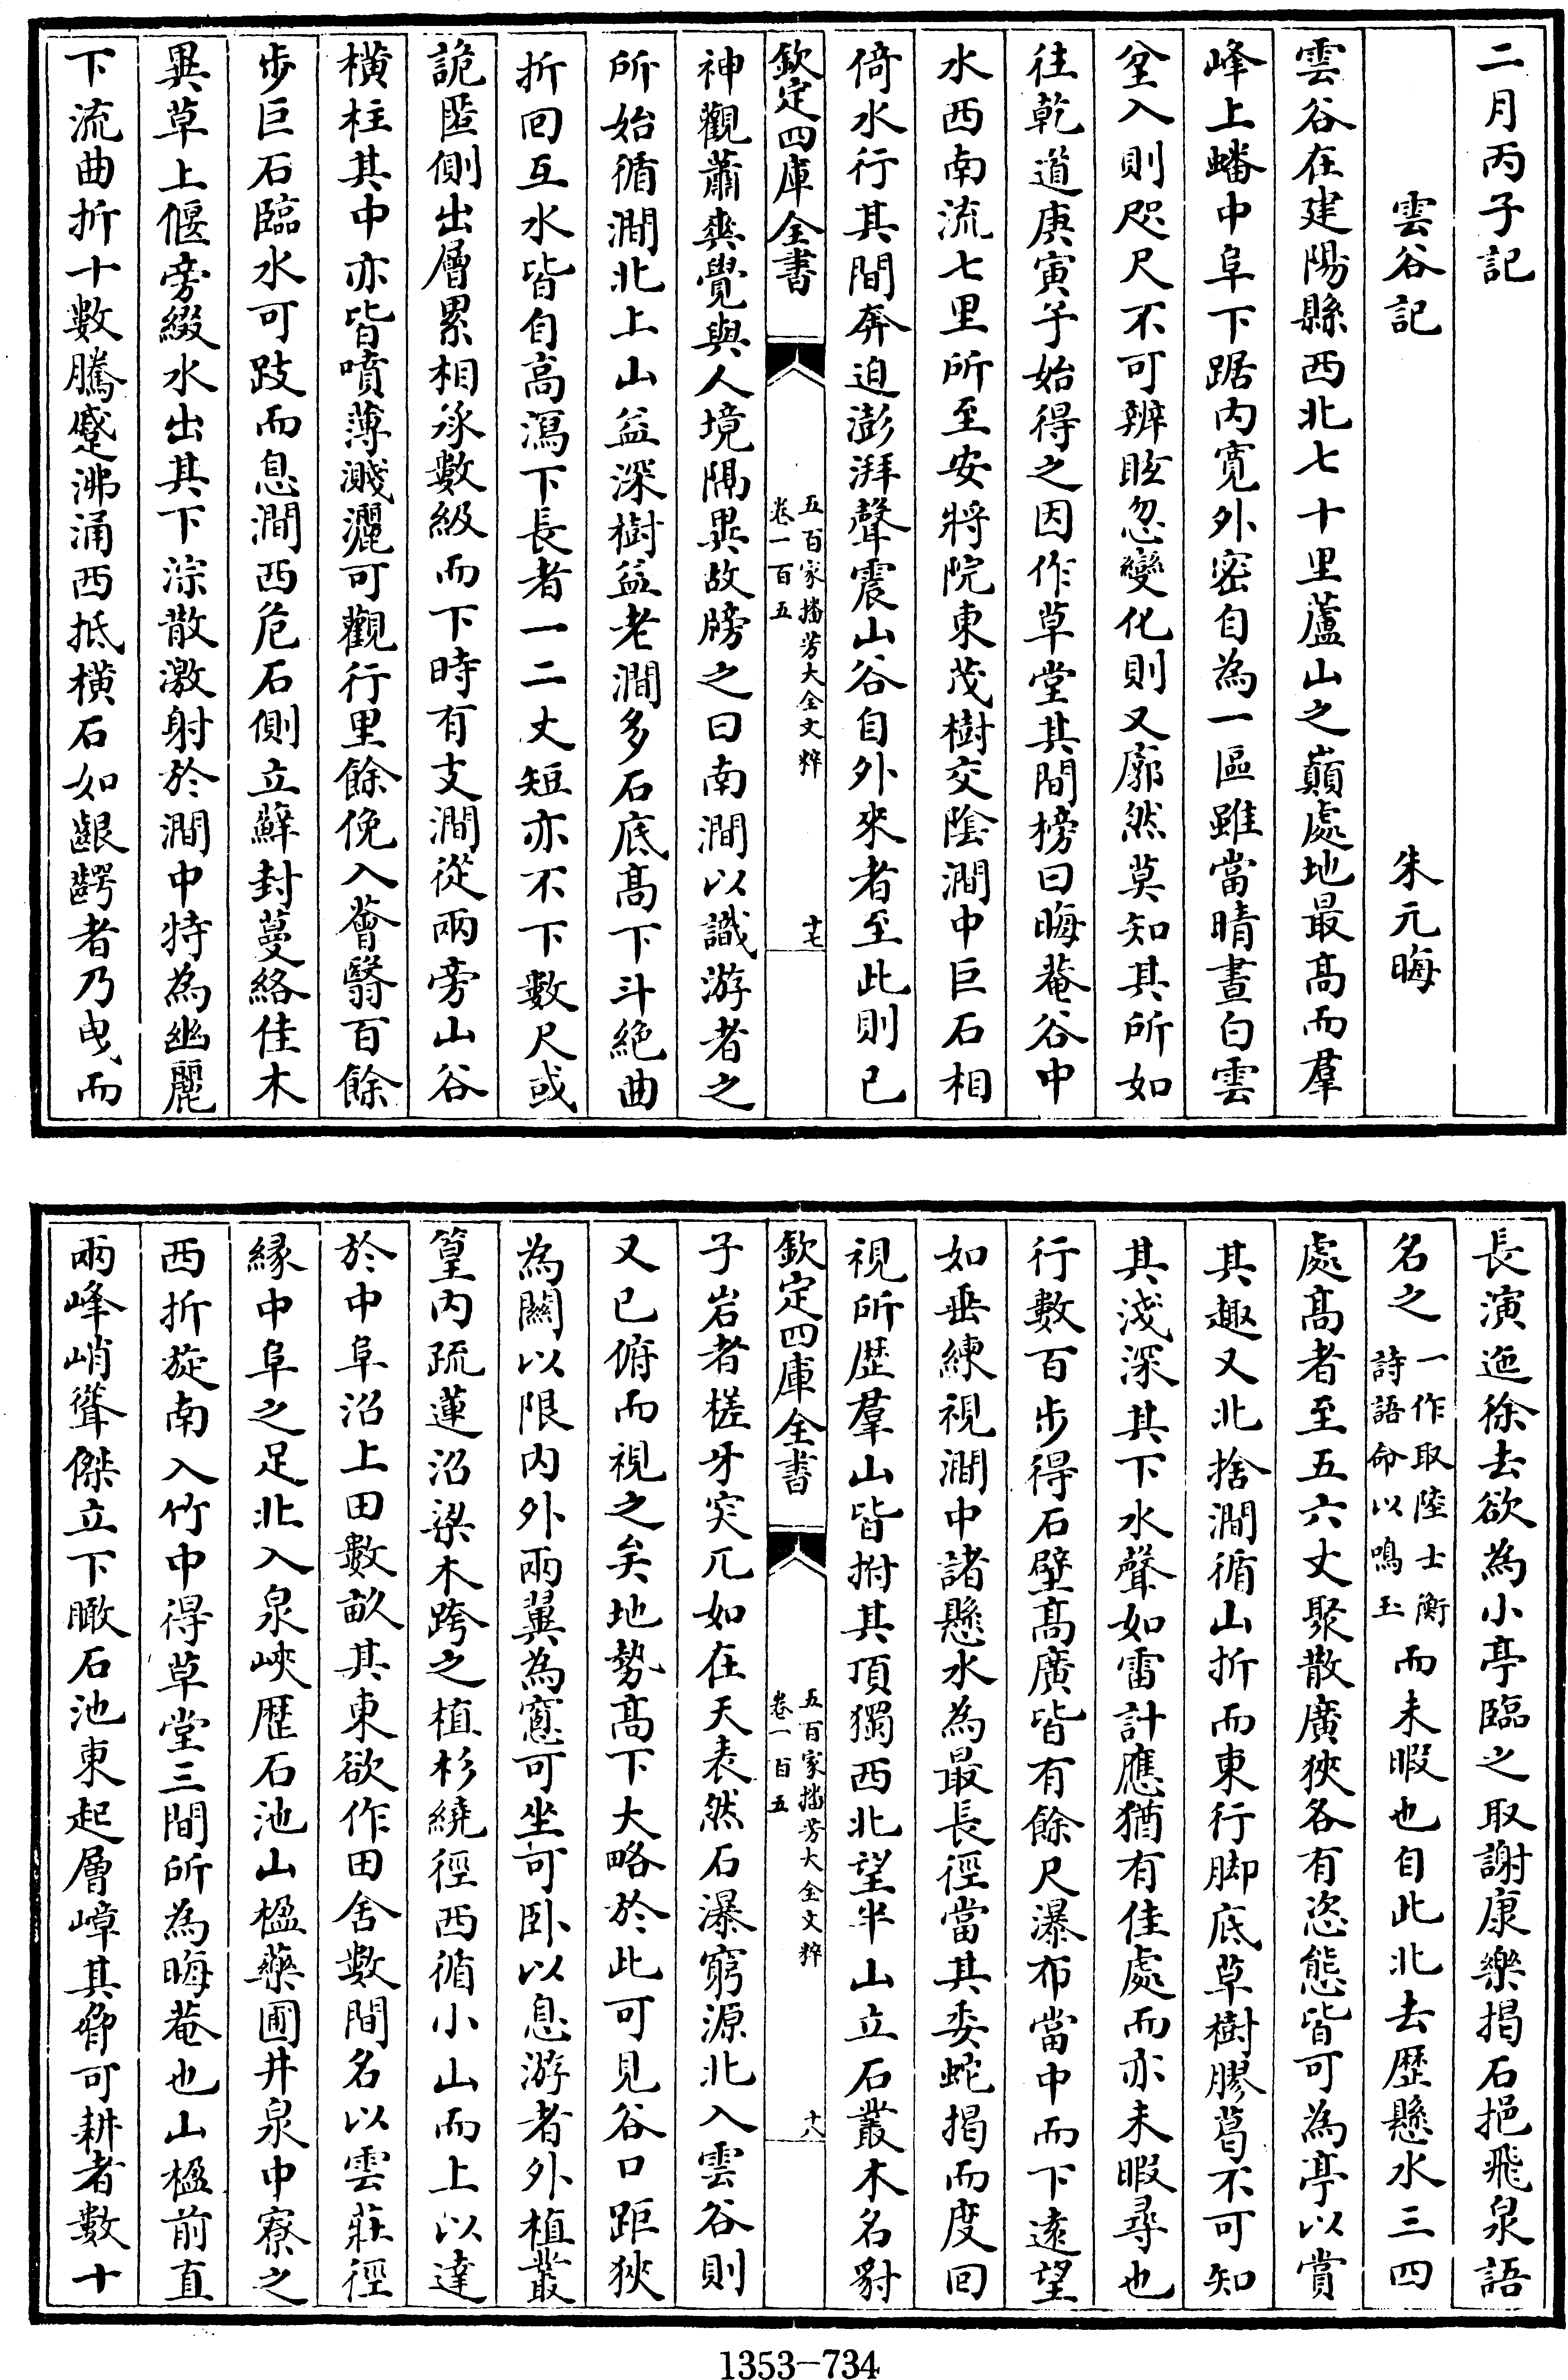 二月丙子記
雲谷記　朱元晦
雲谷在建陽縣西北七十里蘆山之巔處地最髙而羣
峰上蟠中阜下踞内寛外密自為一區雖當晴晝白雲
坌入則咫尺不可辨眩忽變化則又廓然莫知其所如
往乾道庚寅予始得之因作草堂其間榜曰晦菴谷中
水西南流七里所至安將院東茂樹交陰澗中巨石相
倚水行其間奔迫澎湃聲震山谷自外來者至此則已
欽定四庫全書
五百家播芳大全文粹
卷一百五
十七
神觀蕭爽覺與人境隔異故牓之曰南澗以識游者之
所始循澗北上山益深樹益老澗多石底髙下斗絶曲
折回互水皆自高瀉下長者一二丈短亦不下數尺或
詭匿側出層累相承數級而下時有支澗從兩旁山谷
横柱其中亦皆噴薄濺灑可觀行里餘俛入薈翳百餘
步巨石臨水可跂而息澗西危石側立蘚封蔓絡佳木
異草上偃旁綴水出其下淙散激射於澗中特為幽麗
下流曲折十數騰蹙沸涌西抵横石如齦齶者乃曳而
長演迤徐去欲為小亭臨之取謝康樂掲石挹飛泉語
名之一作取陸士衡詩語命以鳴玉而未暇也自此北去歴懸水三四
處髙者至五六丈聚散廣狹各有恣態皆可為亭以賞
其趣又北捨澗循山折而東行脚底草樹膠葛不可知
其淺深其下水聲如雷計應猶有佳處而亦未暇尋也
行數百步得石壁髙廣皆有餘尺瀑布當中而下遠望
如垂練視澗中諸懸水為最長徑當其委蛇掲而度回
視所歴羣山皆拊其頂獨西北望半山立石叢木名豺
欽定四庫全書
五百家播芳大全文粹
卷一百五
十八
子岩者槎牙突兀如在天表然石瀑窮源北入雲谷則
又已俯而視之矣地勢髙下大略於此可見谷口距狹
為關以限内外兩翼為窻可坐可卧以息游者外植叢
篁内疏蓮沼梁木跨之植杉繞徑西循小山而上以達
於中阜沼上田數畝其東欲作田舍數間名以雲莊徑
縁中阜之足北入泉峽歴石池山楹藥圃井泉中寮之
西折旋南入竹中得草堂三間所為晦菴也山楹前直
兩峰峭聳傑立下瞰石池東起層嶂其脅可耕者數十
1353-734